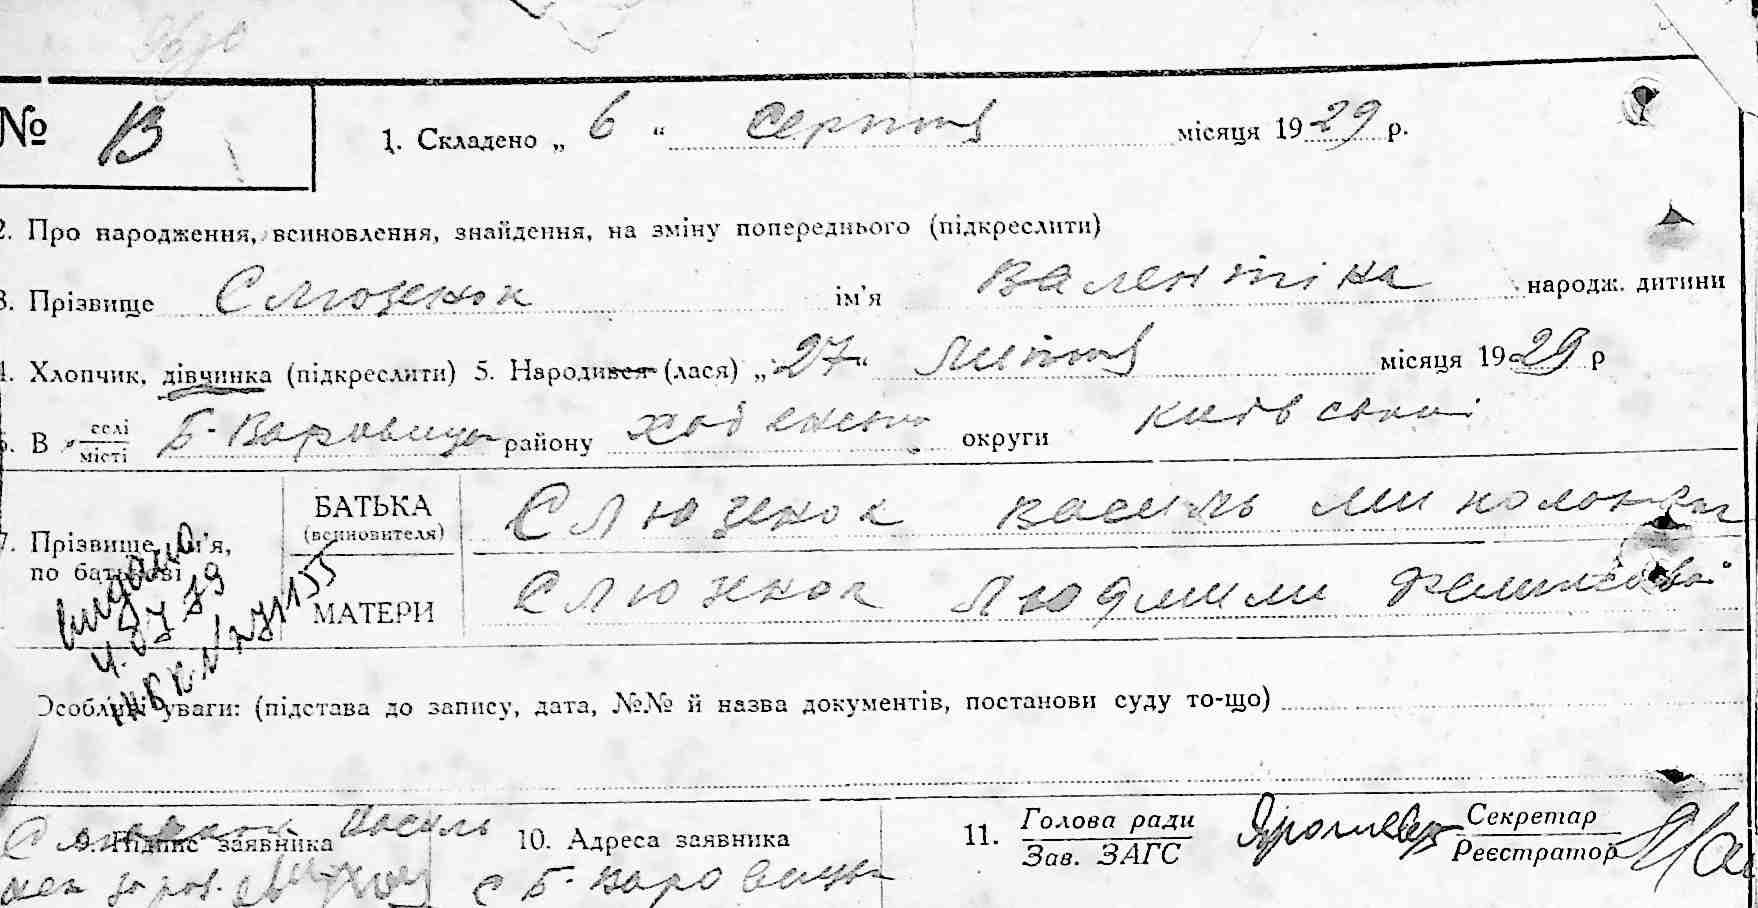 № 13
1. Складено „ 6 “ серпня місяця 1929 р.
2. Про народження, всиновлення, знайдення, на зміну попереднього (підкреслити)
3. Прізвище Слюзенок ім’я Валентіна народж. дитини
4. Хлопчик, дівчинка (підкреслити) 5. Народився (лася) „27“ липня місяця 1929 р
6. В селі місті Б-Варовицьк району округи Київської
7. Прізвище, ім’я, по батькові
БАТЬКА (всиновителя) Слюзенок Василь Миколаевич
МАТЕРИ Слюзенок Людмили
видано
4.07.79
Особливі уваги: (підстава до запису, дата, №№ й назва документів, постанови суду то-що)
9. Підпис заявника Слюзенок Василь
10. Адреса заявника с Б-Варовицьк
11. Голова ради Зав. ЗАГС
Секретар Реєстратор